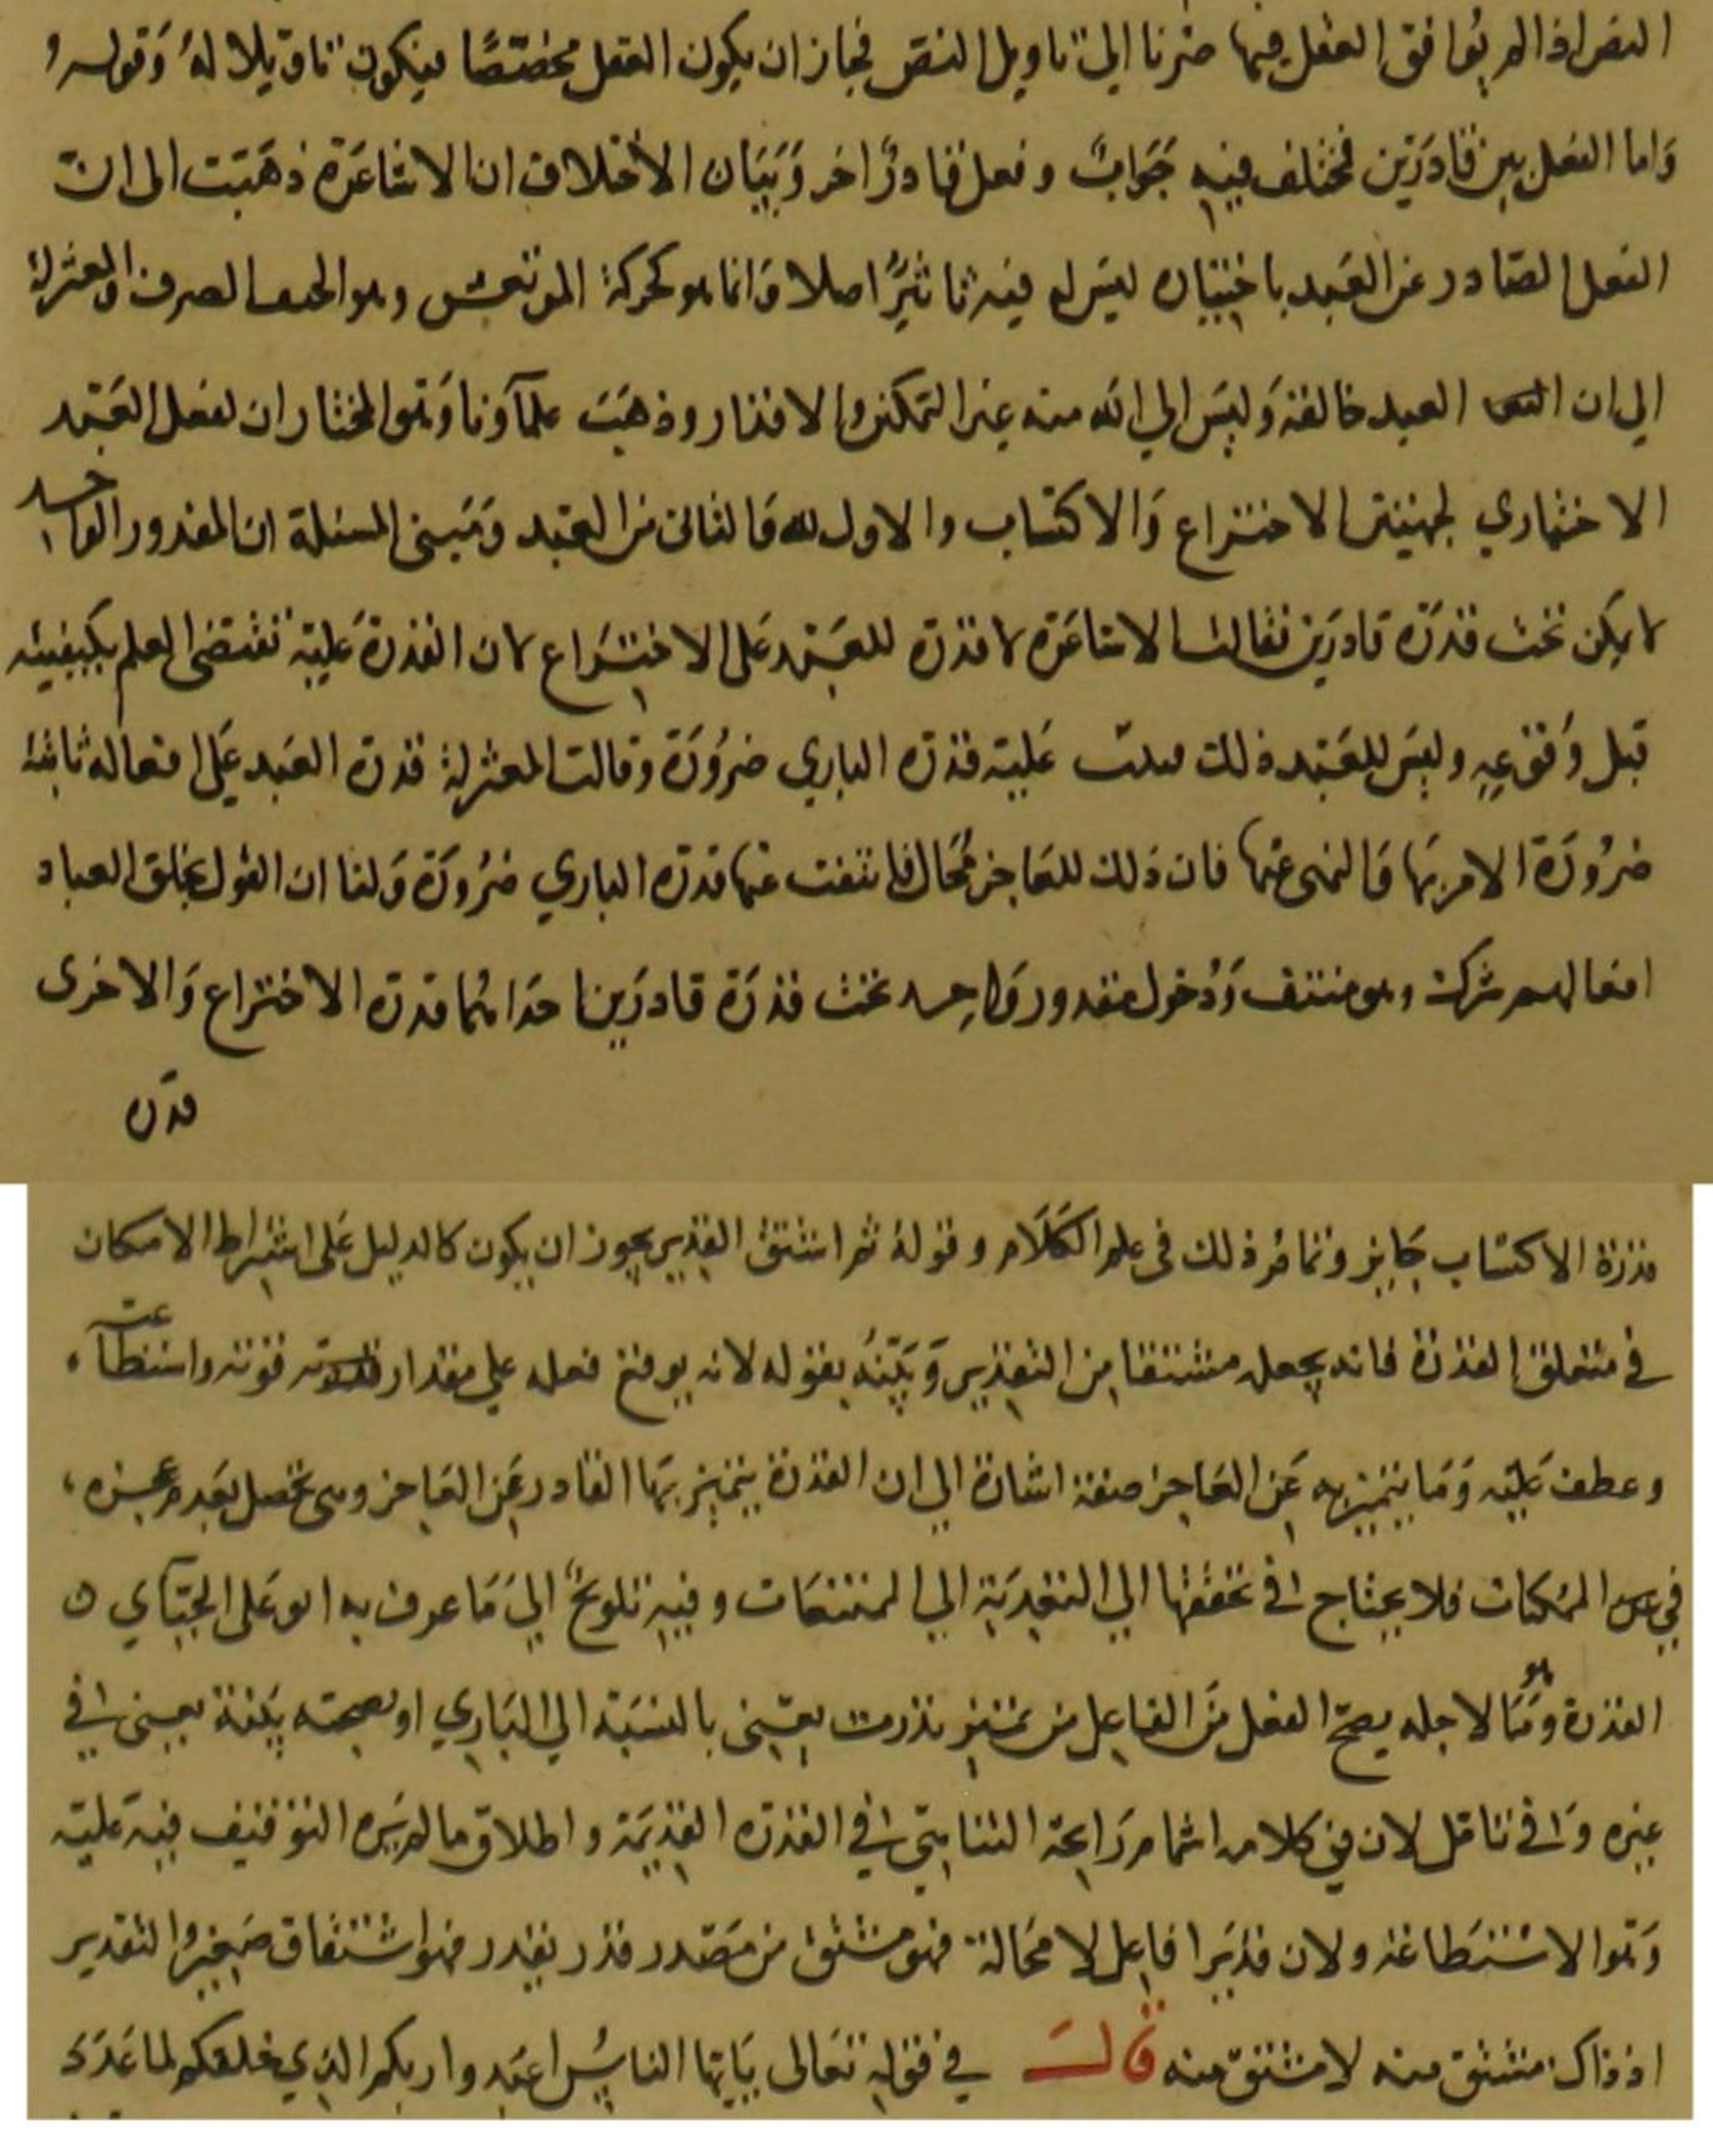 النص اذا لم يوافق العقل فيها صرنا الى تاويل النص فجاز ان يكون العقل مخصصًا فيكون تاويلا له وقوله
واما الفعل بين قادرين فمختلف فيه جَوَابٌ وفعل قادرٍ اخر وَبَيَان الاختلاف ان الاشاعرة ذهبت الى ان
الفعل الصادر عن العَبد باختياره ليس له فيه تاثيرٌ اصلا وَانما هو كحركة المرتعش وهو الصرف والمعتزلة
الى ان العبد خالقه وَليس الى الله منه غير التمكن والاقدار وذهبَت علمآونا وَهو المختار ان لفعل العَبْد
الاختياري لجهتين الاختراع وَالاكتساب والاول لله وَالثانى من العبد وَمَبنى المسئلة ان المقدور الواحد
لا يكن تحت قدرة قادرَين فقالت الاشاعرة لا قدرة للعَبد عَلى الاختراع لان القدرة عَليه تقتضى العلم بكيفيته
قبل وُقوعِهِ وليسَ للعَبد ذلك عَليه قدرة الباري ضرُورَة وقالت المعتزلة قدرة العَبد عَلى افعاله ثابتة
ضرُورَة الامر بهَا وَالنهى عنها فان ذلك للعَاجز مُحَال فانتفت عنها قدرة الباري ضرُورَة وَلنا ان القول بخلق العباد
افعالهم شركة وهو منتف وَدُخول مقدور وَاحِد تحت قدرَة قادرَين احدَاهُما قدرة الاختراع وَالاخرى
قدرة
قدرة الاكتساب جَايز وتمامُ ذلك فى علم الكَلَام وقولهُ ثم اشتق القدير يجوز ان يكون كالدليل عَلى اشتراط الامكان
في متعلق القدرة فانه يجعله مشتقا من التقدير وَبيّنهُ بقوله لانه يوقع فعله على مقدار قوته واستطاعته
وعطف عَليه وَمَا يتميز به عَن العَاجز صفة اشارة الى ان القدرة يتميز بَها القادر عَن العَاجز وهى تحصل بَعد عجزه
في الممكنات فلا يحتاج في تحققها الى التعديَة الى الممتنعَات وفيه تلويحٌ الىَ مَا عرف به ابو عَلى الجبّآي
القدرة وهو مَا لاجله يصحّ الفعل مَن الفاعل من تميز بقدرت يعنى بالنسبَة الى البَاري او بصحته بِنية يعنى في
غيره وَ في تنا قل لان في كلامه اشمام رَايحة التنا هى في القدرة القديمَة واطلاق ما لم يَرِه التوقيف فيه عَليه
وَهو الاستطاعة ولان قديَرا فاعِل لا محَالة فهو مشتق من مَصْدر قدر يقدر فهو اشتقاق صَغير والتقدير
اذ ذاك مشتق منه لا مشتق منه قالَ في قوله تعَالى يَايها الناسُ اعبَدوا ربكم الذي خلقكم لما عَدَدَ